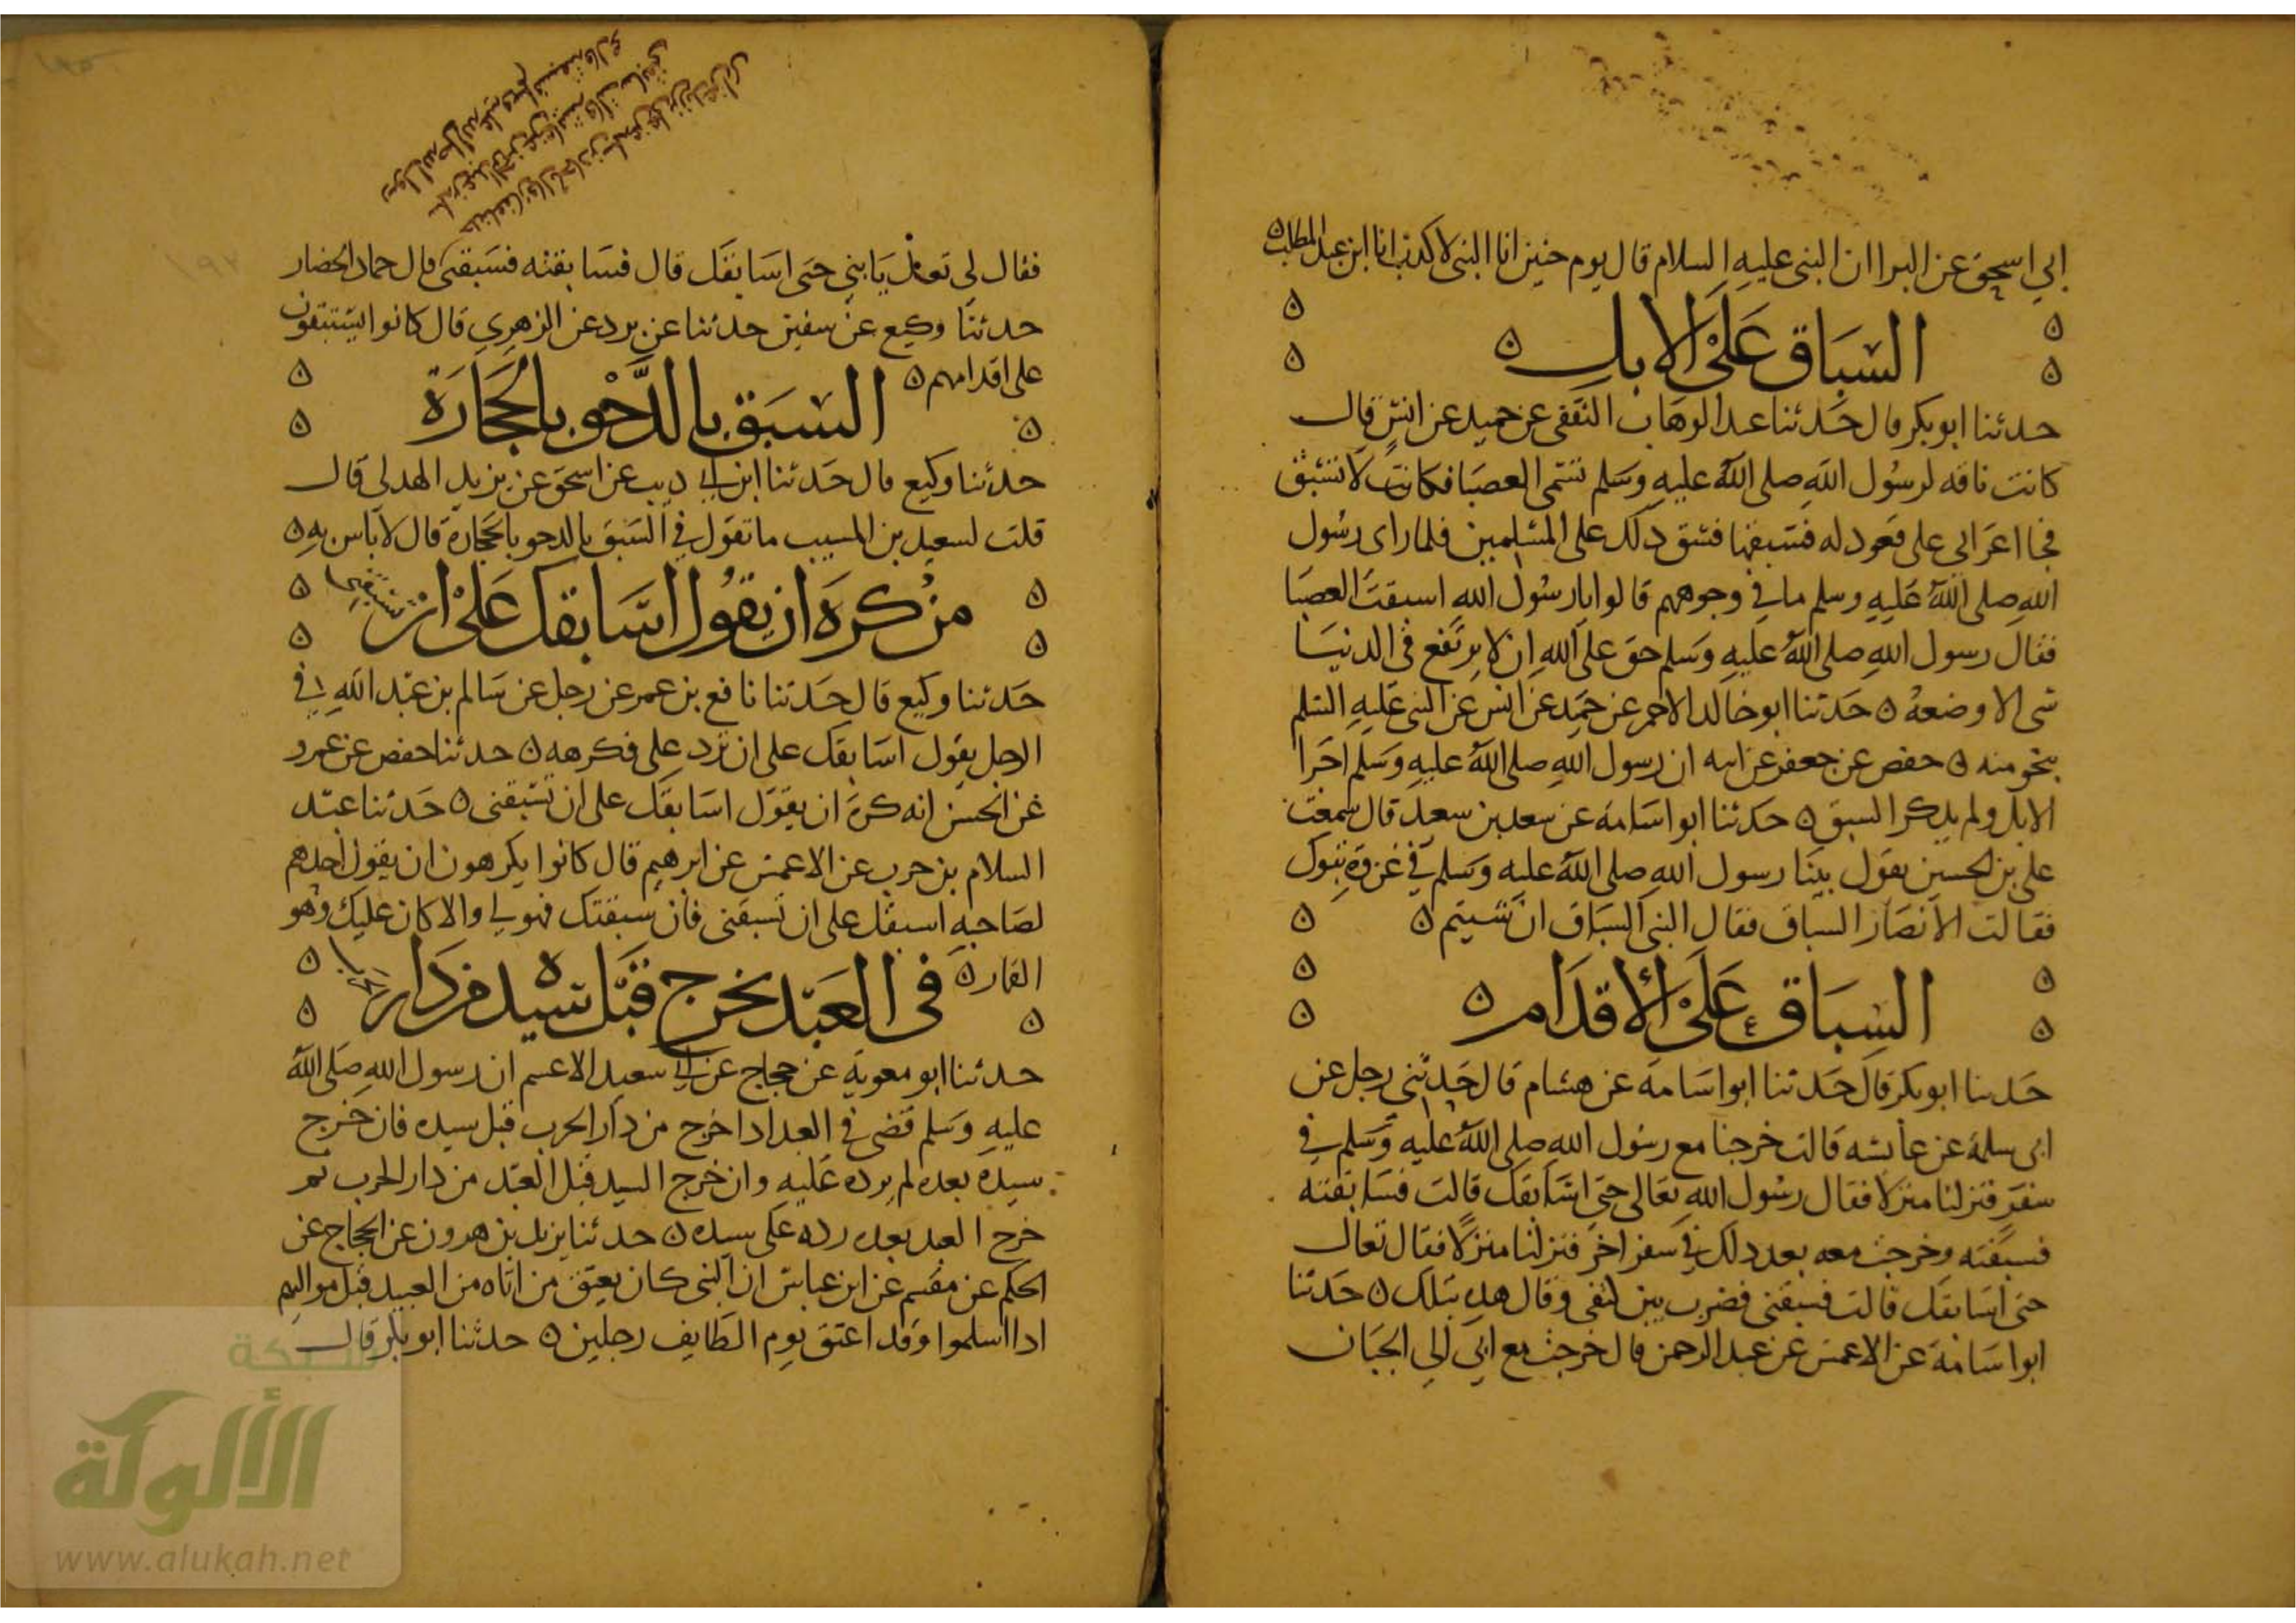 ابي اسحق عن البرا ان النبي عليه السلام قال يوم حنين انا النبي لا كذب انا ابن عبد المطلب ه
السباق على الابل ه
حدثنا ابو بكر قال حدثنا عبد الوهاب الثقفي عن حميد عن انس قال
كانت ناقه لرسول الله صلى الله عليه وسلم تسمى العصبا فكانت لا تسبق
فجا اعرابي على قعود له فسبقها فشق ذلك على المسلمين فلما راى رسول
الله صلى الله عليه وسلم ما في وجوههم قالوا يا رسول الله اسبقت العصبا
فقال رسول الله صلى الله عليه وسلم حق على الله ان لا يرتفع في الدنيا
شي الا وضعه ه حدثنا ابو خالد الاحمر عن حميد عن انس عن النبي عليه السلم
بنحو منه ه حفص عن جعفر عن ابيه ان رسول الله صلى الله عليه وسلم اجرا
الابل ولم يذكر السبق ه حدثنا ابو اسامة عن سعد بن سعيد قال سمعت
علي بن الحسين يقول بينا رسول الله صلى الله عليه وسلم في غزوة تبوك
فقالت الانصار السباق فقال النبي السباق ان شيتم ه
السباق على الاقدام ه
حدثنا ابو بكر قال حدثنا ابو اسامة عن هشام قال حدثني رجل عن
ابي سلمة عن عايشه قالت خرجنا مع رسول الله صلى الله عليه وسلم في
سفر فنزلنا منزلا فقال رسول الله تعالي حتى اسابقك قالت فسابقته
فسبقته وخرجت معه بعد ذلك في سفر اخر فنزلنا منزلا فقال تعال
حتى اسابقك قالت فسبقني فضرب بين كتفي وقال هذه بتلك ه حدثنا
ابو اسامة عن الاعمش عن عبد الرحمن قال خرجت مع ابي الى الجبان
فقال لي تعال يا بني حتى اسابقك قال فسابقته فسبقني قال حماد الحضار
حدثنا وكيع عن سفين حدثنا عن برد عن الزهري قال كانوا يستبقون
على اقدامهم ه السبق بالدحو بالحجارة
حدثنا وكيع قال حدثنا ابن ابي ديب عن اسحق عن يزيد الهدلي قال
قلت لسعيد بن المسيب ما تقول في السبق بالدحو بالحجارة قال لا باس به ه
من كره ان يقول اسابقك على ان تسبقني
حدثنا وكيع قال حدثنا نافع بن عمر عن رجل عن سالم بن عبد الله في
الرجل يقول اسابقك على ان ترد علي فكرهه ه حدثنا حفص عن عمرو
عن الحسن انه كره ان يقول اسابقك على ان تسبقني ه حدثنا عبد
السلام بن حرب عن الاعمش عن ابرهيم قال كانوا يكرهون ان يقول احدهم
لصاحبه اسبقك على ان تسبقني فان سبقتك فهو لي والا كان عليك وهو
القمار ه في العبد يخرج قبل سيده من دار الحرب
حدثنا ابو معوية عن حجاج عن ابي سعيد الاعسم ان رسول الله صلى الله
عليه وسلم قضى في العبد اذا خرج من دار الحرب قبل سيده فان خرج
سيده بعده لم يرده عليه وان خرج السيد قبل العبد من دار الحرب ثم
خرج العبد بعده رده على سيده ه حدثنا يزيد بن هرون عن الحجاج عن
الحكم عن مقسم عن ابن عباس ان النبي كان يعتق من اتاه من العبيد قبل مواليهم
اذا اسلموا وقد اعتق يوم الطايف رجلين ه حدثنا ابو بكر قال
شبكة
الألوكة
www.alukah.net